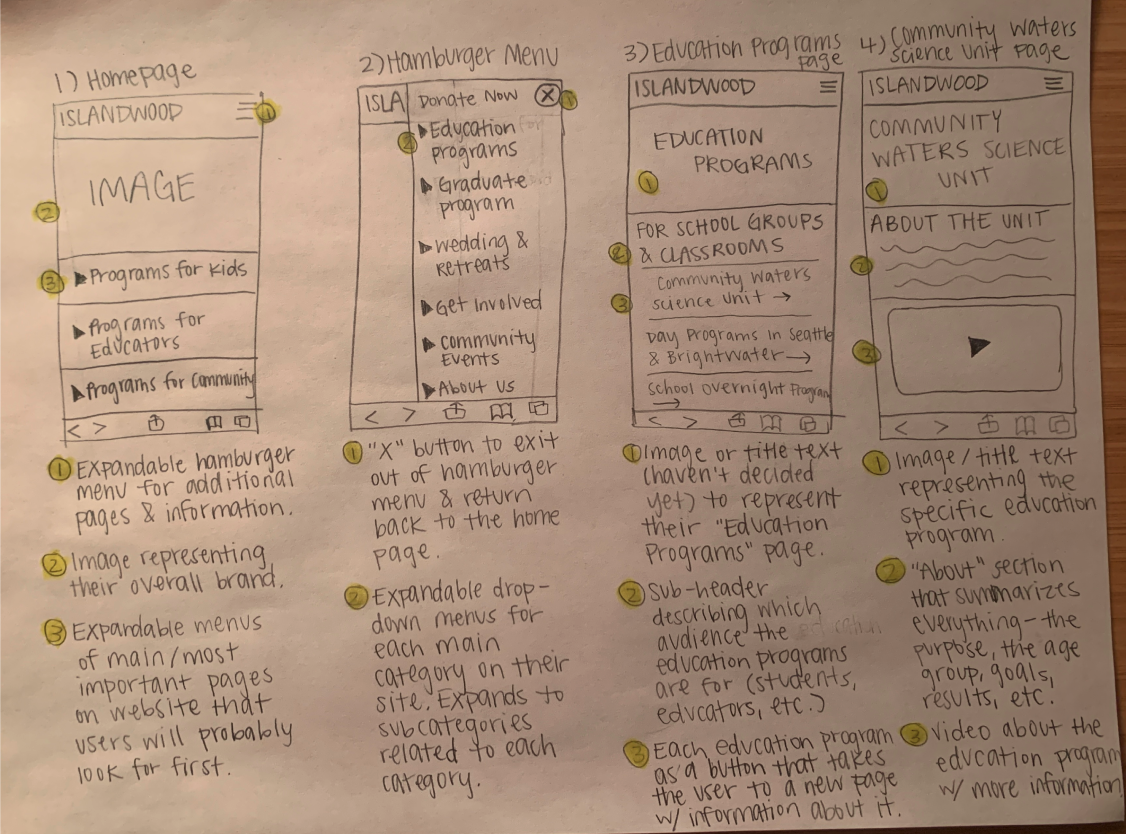 1) Homepage
ISLANDWOOD
1
IMAGE
2
3
Programs for Kids
Programs for
Educators
Programs for Community
< >
1 Expandable hamburger
menu for additional
pages & information.
2 Image representing
their overall brand.
3 Expandable menus
of main/most
important pages
on website that
users will probably
look for first.
2) Hamburger Menu
ISLA
Donate Now X 1
2
Education
programs
Graduate
program
Wedding &
Retreats
Get Involved
Community
Events
About Us
< >
1 "X" button to exit
out of hamburger
menu & return
back to the home
page.
2 Expandable drop-
down menus for
each main
category on their
site. Expands to
subcategories
related to each
category.
3) Education Programs
page
ISLANDWOOD
EDUCATION
PROGRAMS
1
FOR SCHOOL GROUPS
2 & CLASSROOMS
Community Waters
3 science unit →
Day Programs in Seattle
& Brightwater →
School Overnight Program
→
< >
1 Image or title text
(haven't decided
yet) to represent
their "Education
Programs" page.
2 Sub-header
describing which
audience the
education programs
are for (students,
educators, etc.)
3 Each education program
as a button that takes
the user to a new page
w/ information about it.
4) Community Waters
Science Unit page
ISLANDWOOD
COMMUNITY
WATERS SCIENCE
UNIT
1
ABOUT THE UNIT
2
3
< >
1 Image/title text
representing the
specific education
program.
2 "About" section
that summarizes
everything - the
purpose, the age
group, goals,
results, etc.
3 Video about the
education program
w/ more information